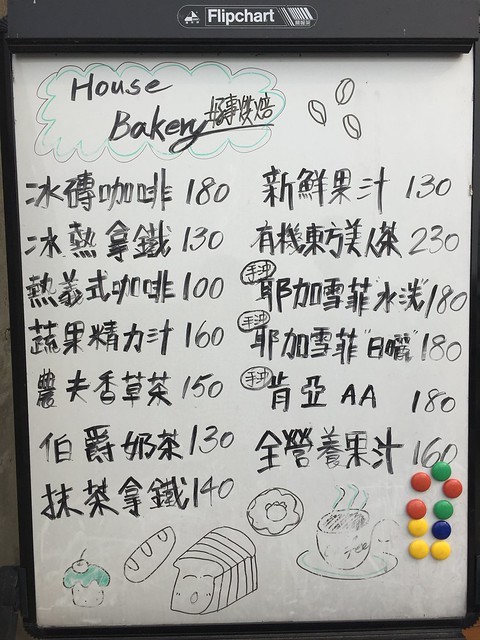 Flipchart
House
Bakery 好事烘焙
冰磚咖啡 180
冰熱拿鐵 130
熱義式咖啡 100
蔬果精力汁 160
農夫香草茶 150
伯爵奶茶 130
抹茶拿鐵 140
新鮮果汁 130
有機東方美人茶 230
手沖 耶加雪菲"水洗" 180
手沖 耶加雪菲"日曬" 180
手沖 肯亞 AA 180
全營養果汁 160